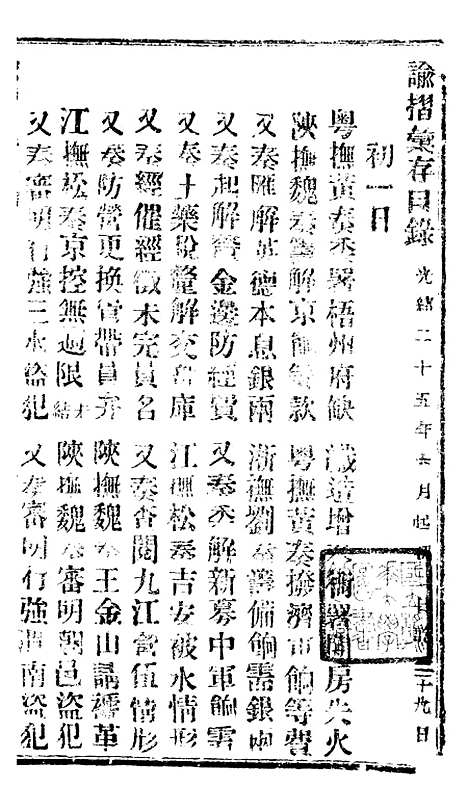 諭摺彙存目錄 光緒二十五年 月起 二十九日
初一日
粵撫黃奏委署梧州府缺 織造增 衙署 房失火
陝撫魏奏籌解京餉等款 粵撫黃奏撥濟市餉等費
又奏匯解英德本息銀兩 浙撫劉奏籌備餉需銀兩
又奏起解黃金邊防經費 又奏委解新募中軍餉需
又奏土藥股釐解交部庫 江撫松奏吉安被水情形
又奏經催經徵未完員名 又奏查閱九江營伍情形
又奏防營更換管帶員弁 陝撫魏奏王金山請褫革
江撫松奏京控無逾限未結 陝撫魏奏審明朝邑盜犯
又奏審明行強三水盜犯 又奏審明行強渭南盜犯